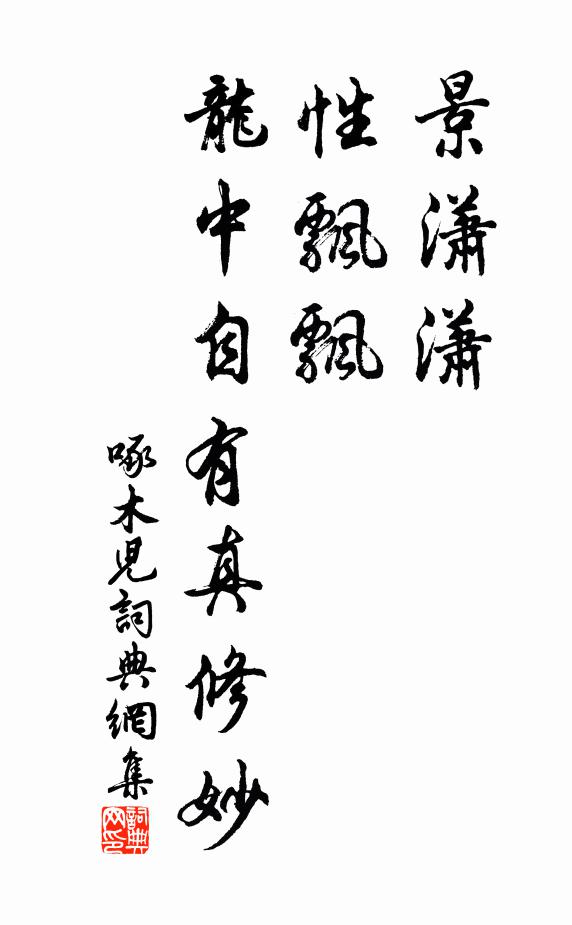 景瀟瀟
性飄飄
龍中自有真修妙
啄木兒詞典網集
詞典網印